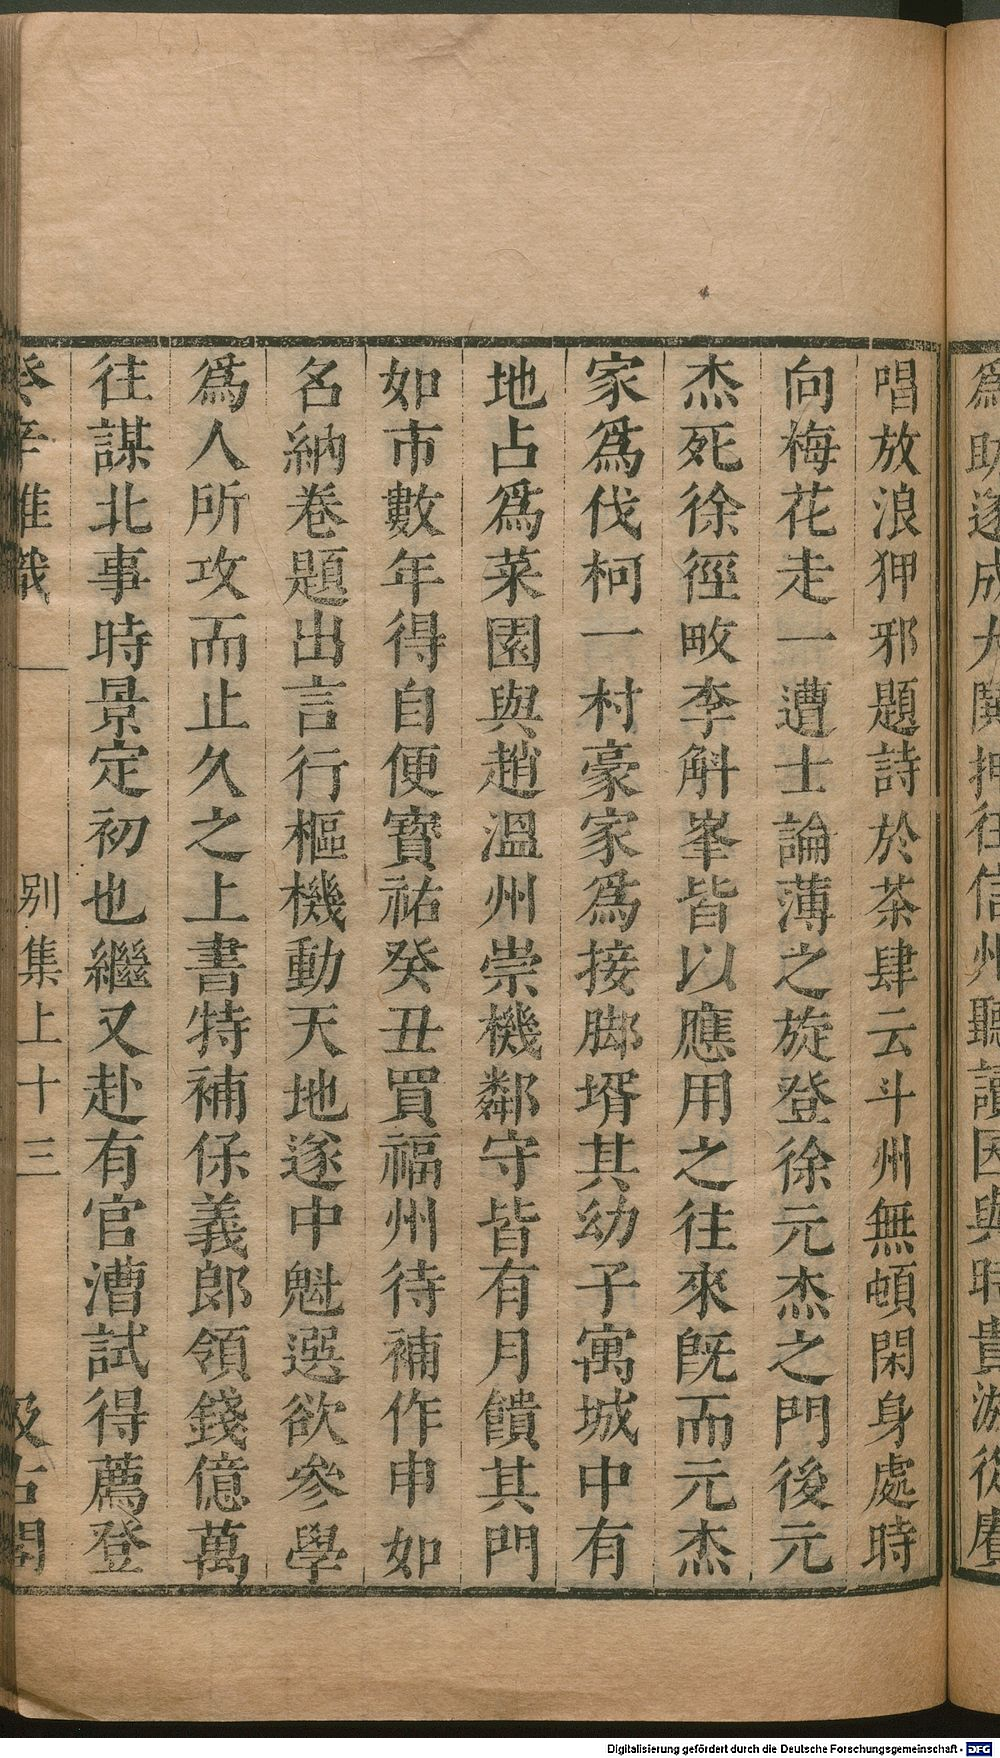 爲助遂成大鬨押往信州聽讀因與時貴游從賡
唱放浪狎邪題詩於茶肆云斗州無頓閑身處時
向梅花走一遭士論薄之旋登徐元杰之門後元
杰死徐徑畋李斛峯皆以應用之往來旣而元杰
家爲伐柯一村豪家爲接脚壻其幼子寓城中有
地占爲菜園與趙溫州崇機鄰守皆有月饋其門
如市數年得自便寳祐癸丑買福州待補作申如
名納卷題出言行樞機動天地遂中魁選欲參學
爲人所攻而止久之上書特補保義郎領錢億萬
往謀北事時景定初也繼又赴有官漕試得薦登
癸辛雜識 別集上 十三 汲古閣
Digitalisierung gefördert durch die Deutsche Forschungsgemeinschaft - DFG